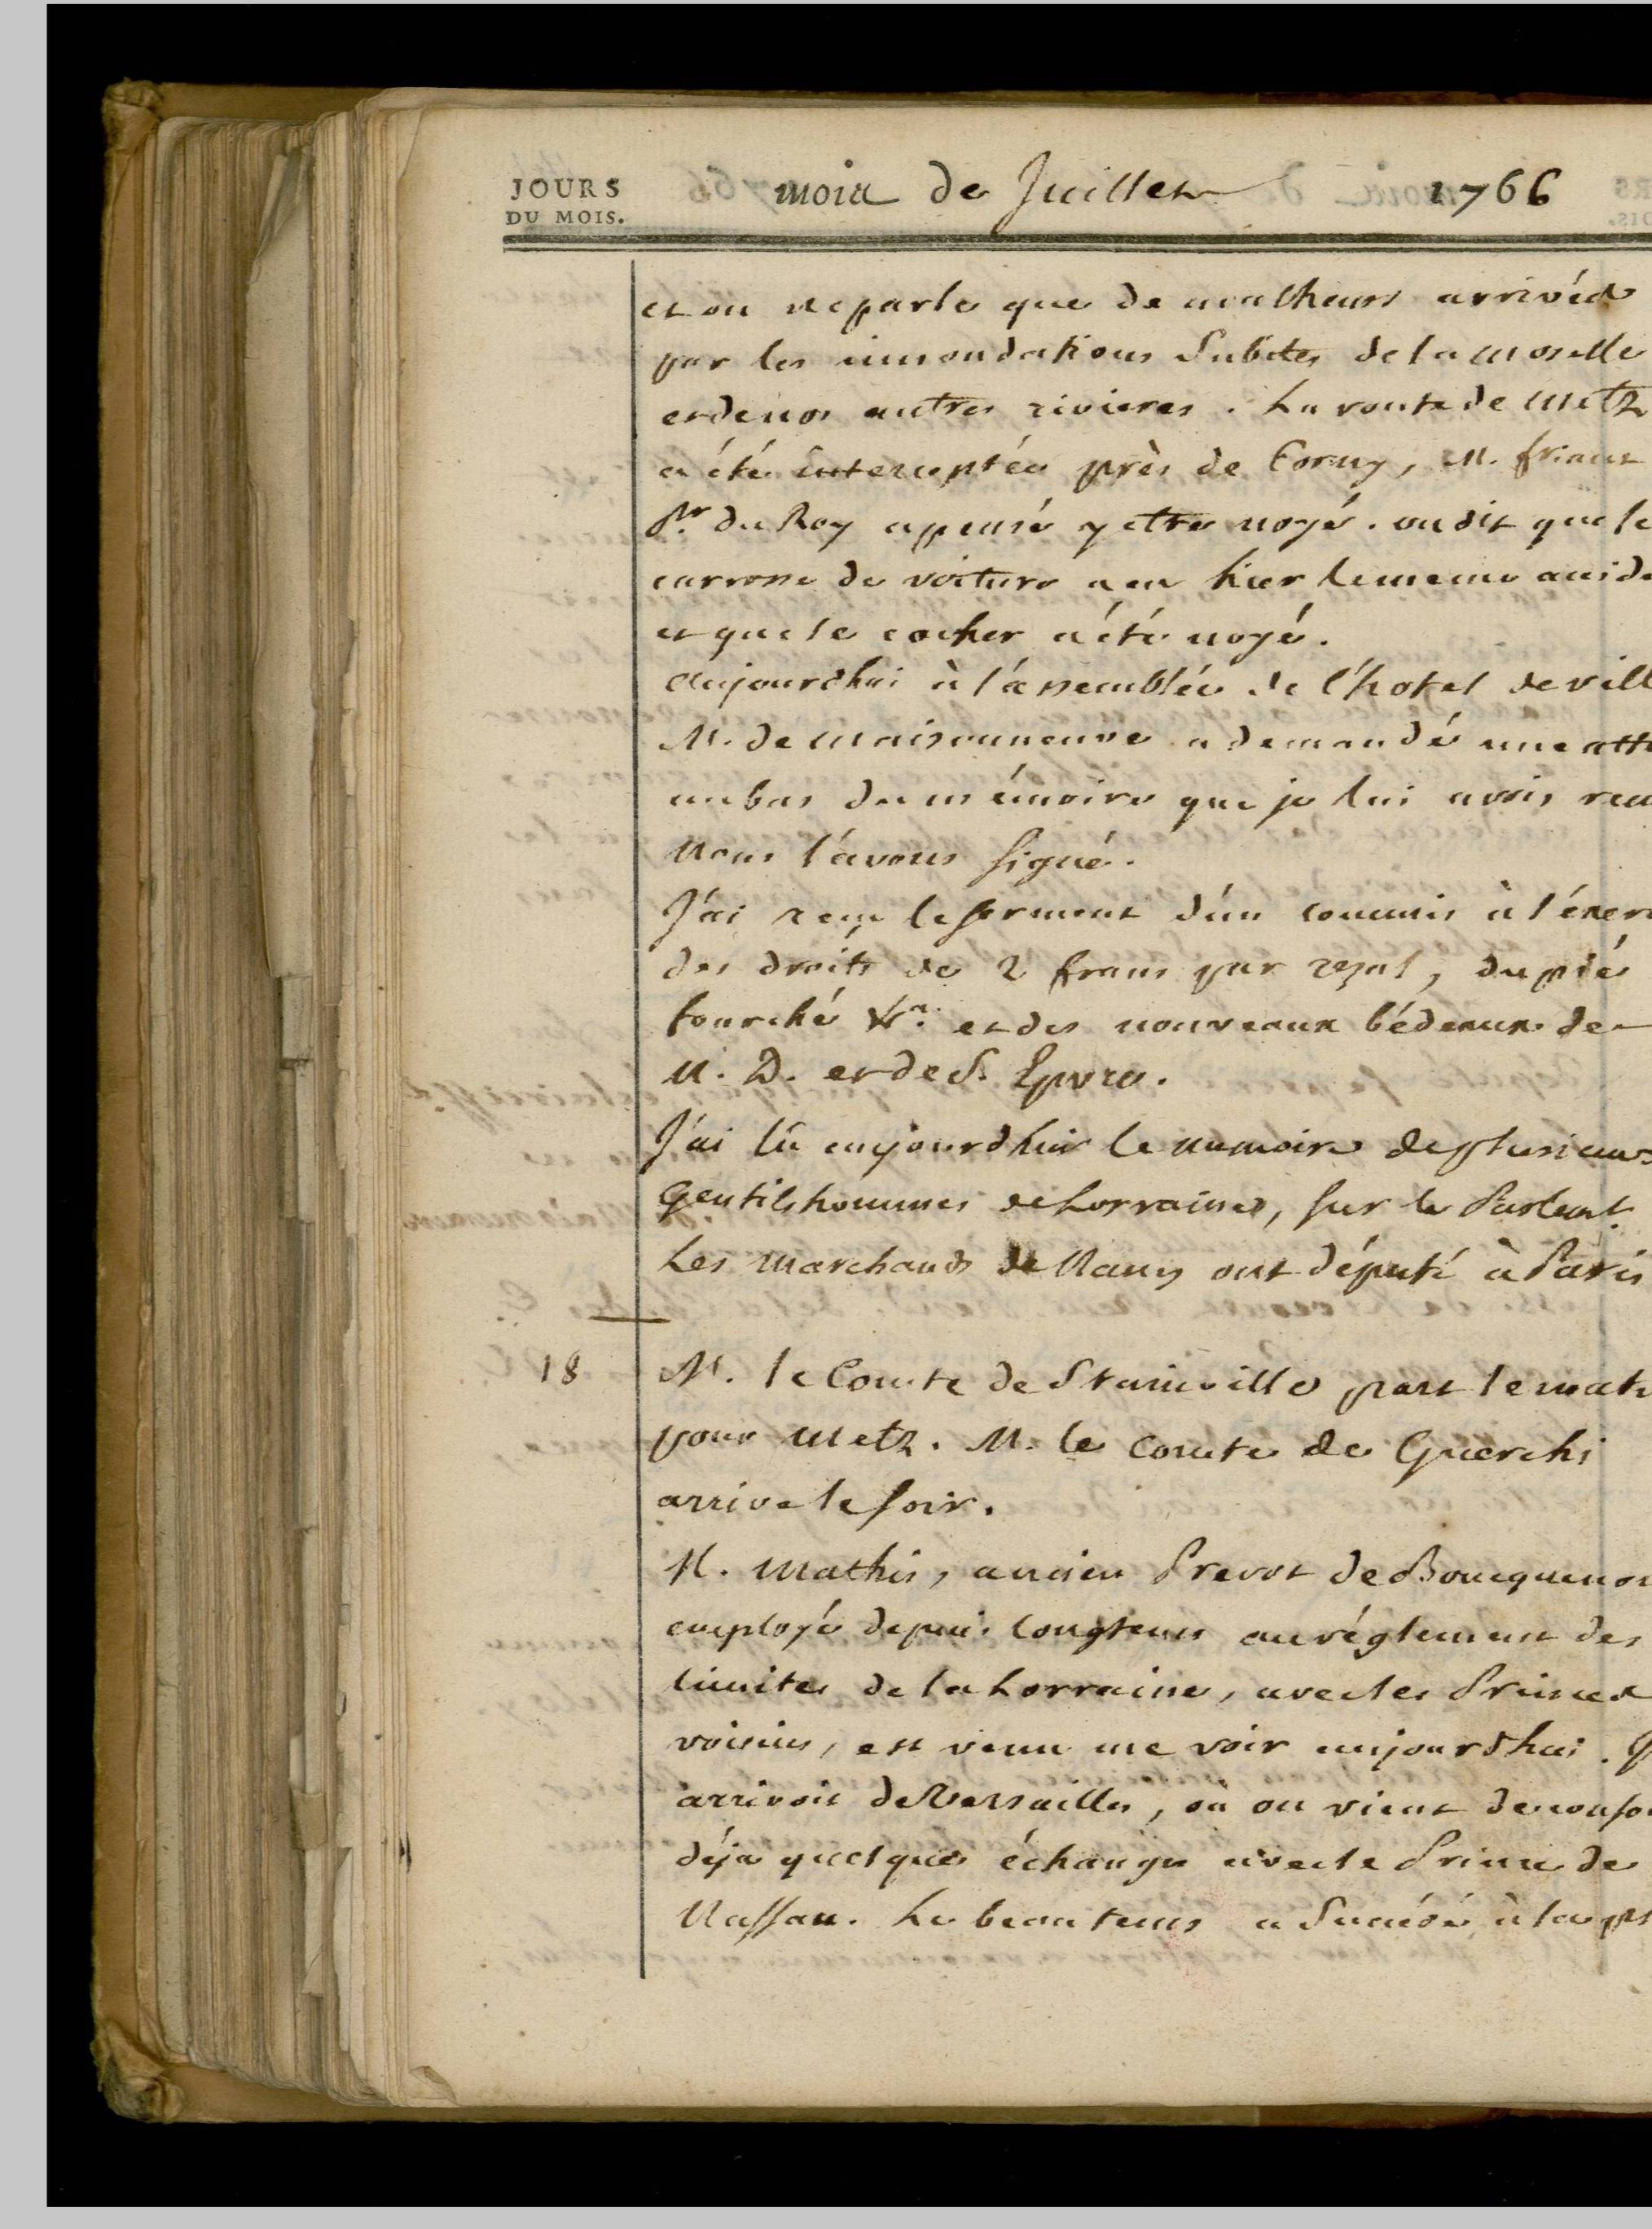 JOURS
DU MOIS.
mois de Juillet 1766
et on ne parle que de malheurs arrivés
par les innondations subites de la moselle
et de nos autres rivieres. La route de Metz
a été interceptée près de Corny, M. friant
Pr. du Roy a pensé y etre noyé. on dit que le
carrosse de voiture a eu hier le meme accide
et que le cocher a été noyé.
Aujourdhui à l'assemblée de l'hotel de vill
M. de Maisonneuve a demandé une atte
au bas du mémoire que je lui avois
Nous l'avons signé.
J'ai reçu le serment d'un commis à l'exer
des droits de 2 frans par rezal, du pié
fourché &a. et des nouveaux bédeaux de
N. D. et de S. Epvre.
J'ai lû aujourdhui le memoire de plusieurs
Gentilshommes de Lorraine, sur le Parlemt.
Les Marchands de Nancy ont député à Paris
18
M. le Comte de Stainville part le mati
pour Metz. M. le Comte de Guerchi
arrive le soir.
M. Mathis, ancien Prevot de Boucquenom
employé depuis longtems au réglement des
limites de la Lorraine, avec les Princes
voisins, est venu me voir aujourdhui.
arrivoit de Versailles, où on vient de
déja quelques échanges avec le Prince de
Nassau. Le beau tems a succédé à la pl